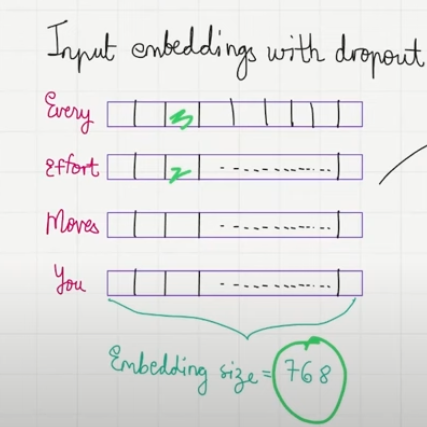 Input embeddings with dropout
Every
Effort
Moves
You
Embedding size = 768